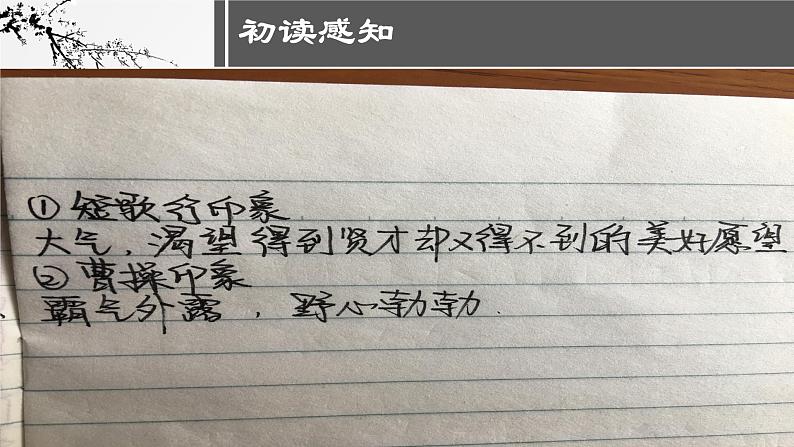 初读感知
①短歌行印象
大气，渴望得到贤才却又得不到的美好愿望
②曹操印象
霸气外露，野心勃勃.